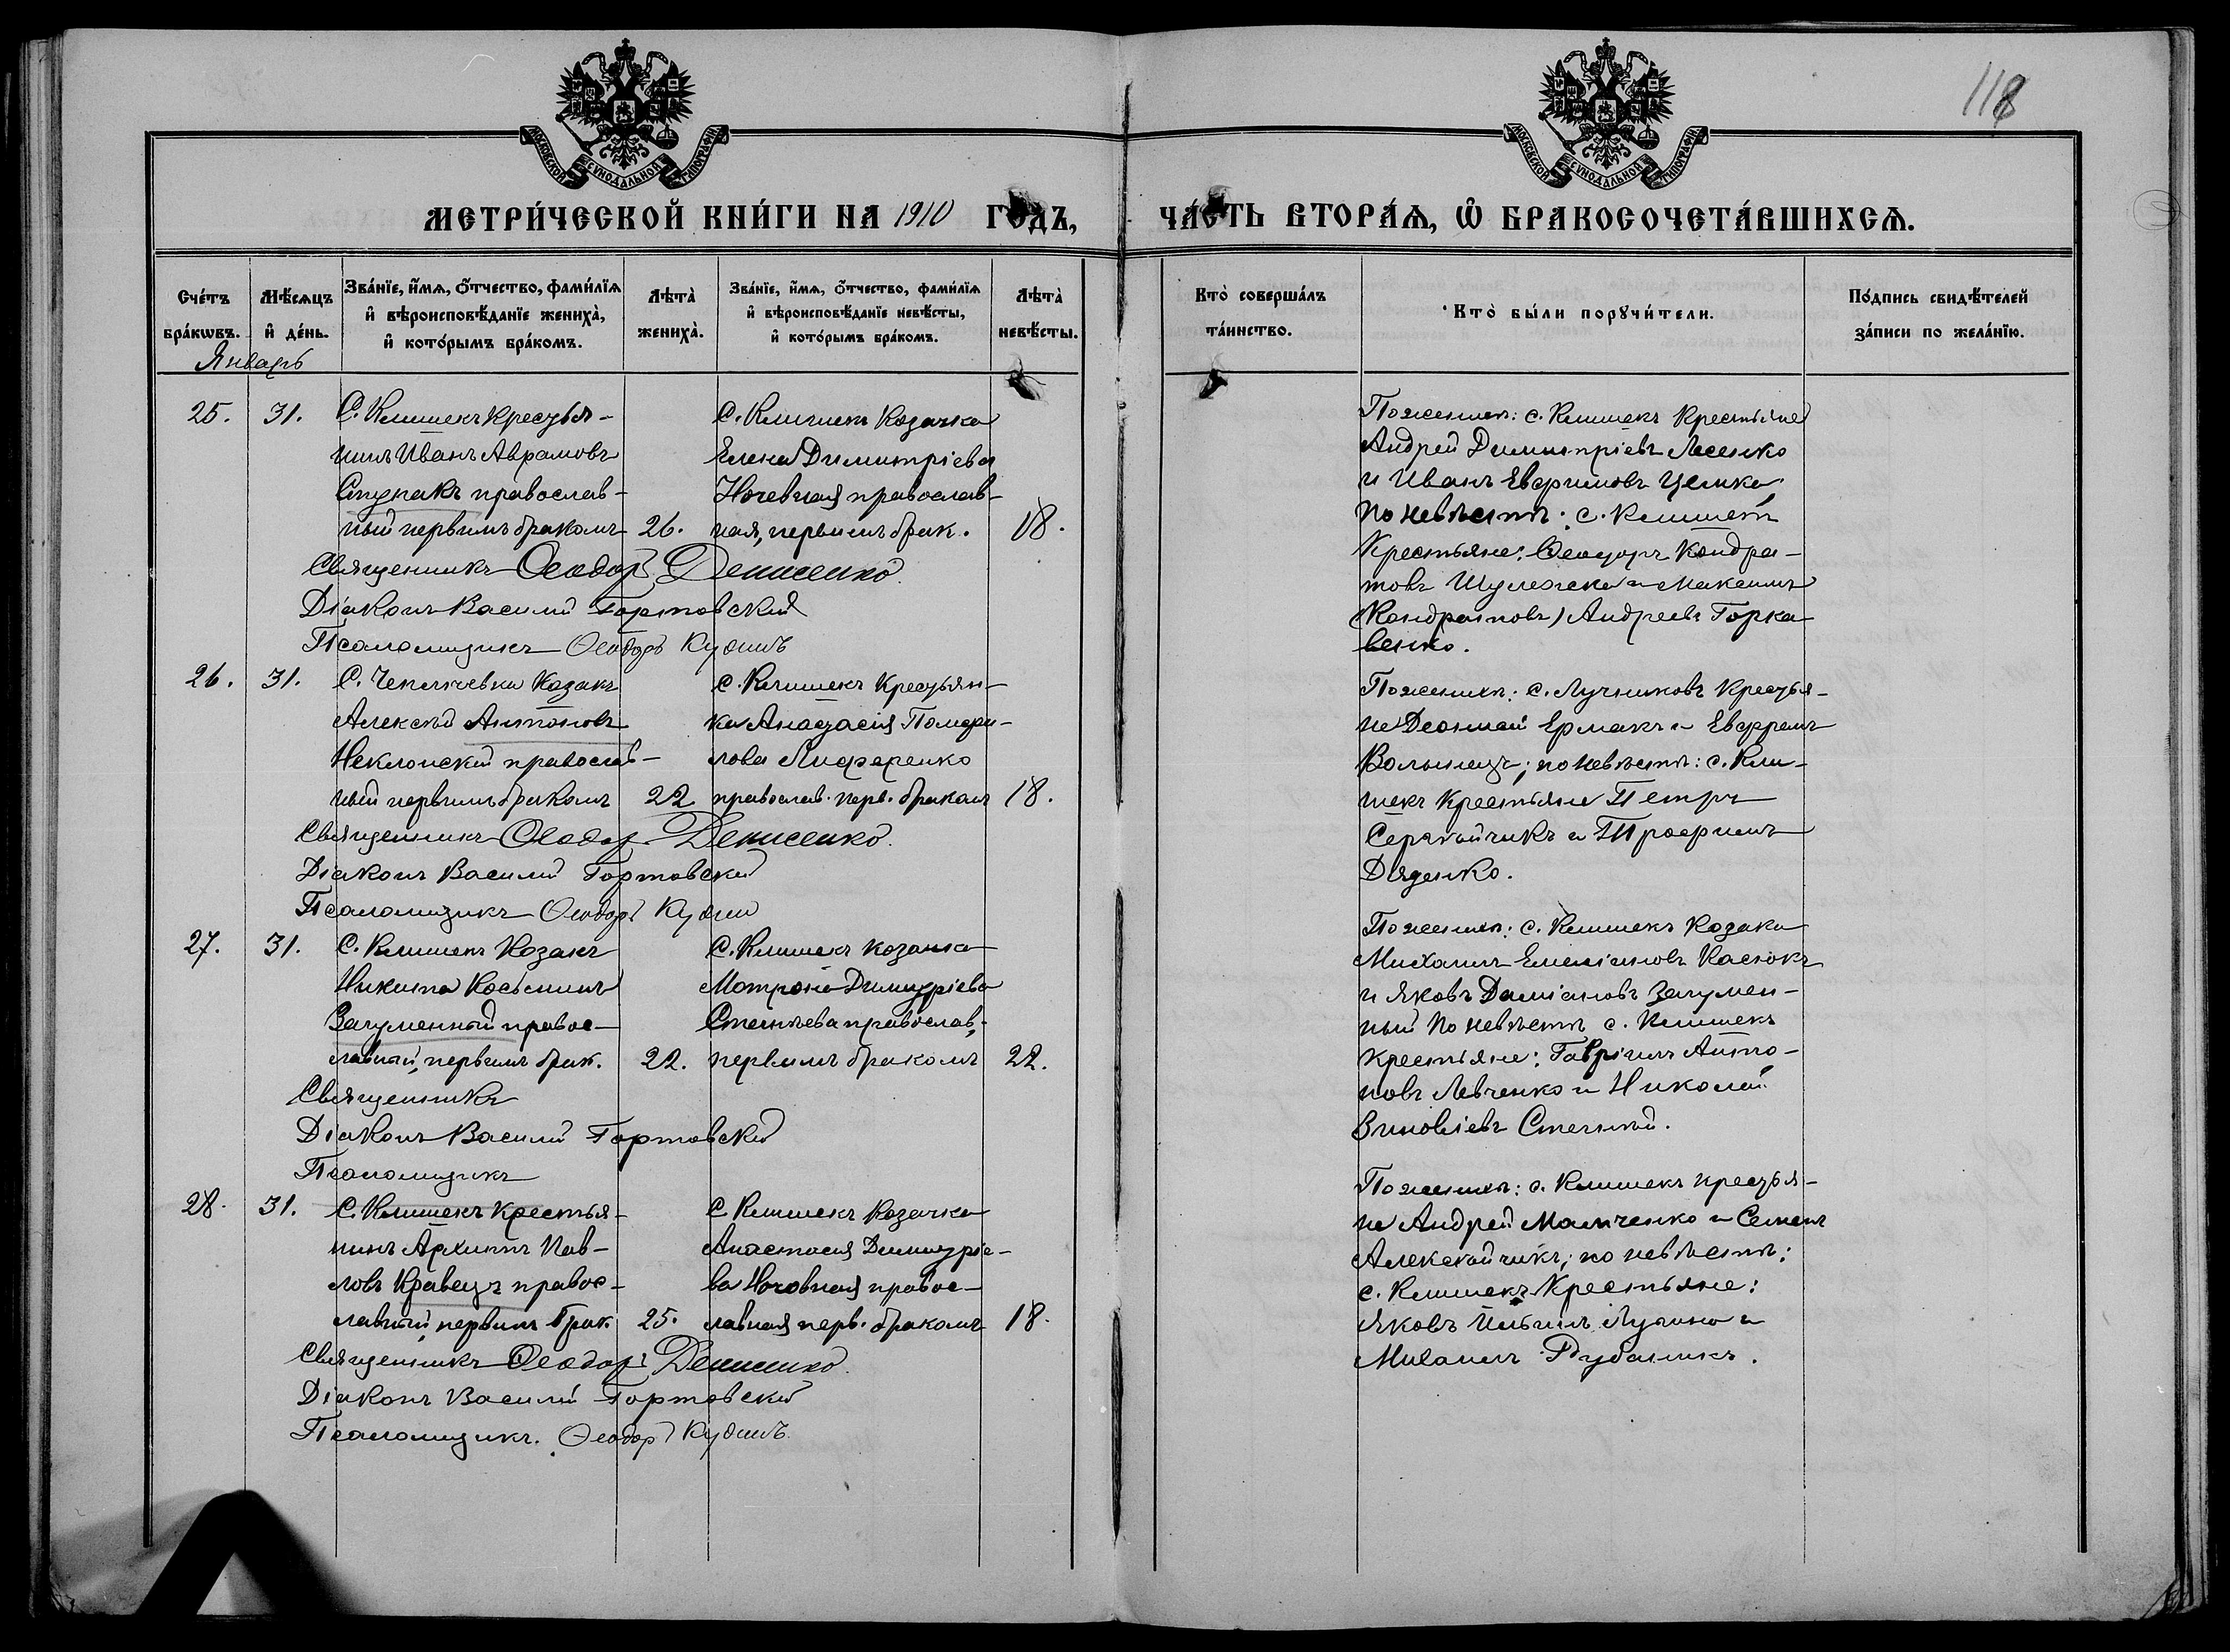 118
МОСКОВСКОЙ СѴНОДАЛЬНОЙ ТИПОГРАФІИ
МОСКОВСКОЙ СѴНОДАЛЬНОЙ ТИПОГРАФІИ
МЕТРИ́ЧЕСКОЙ КНИ́ГИ НА 1910 ГОДЪ,
ЧА́СТЬ ВТОРА́Ѧ, Ѡ҆ БРАКОСОЧЕТА́ВШИХСѦ.
Сче́тъ
бра́кѡвъ.
Мѣ́сѧцъ
и҆ де́нь.
Зва́нїе, и҆́мѧ, ѻ҆́тчество, фами́лїѧ
и҆ вѣроисповѣ́данїе жениха̀,
и҆ кото́рымъ бра́комъ.
Лѣта̀
жениха̀.
Зва́нїе, и҆́мѧ, ѻ҆́тчество, фами́лїѧ
и҆ вѣроисповѣ́данїе невѣ́сты,
и҆ кото́рымъ бра́комъ.
Лѣта̀
невѣ́сты.
Кто̀ соверша́лъ
та́инство.
Кто̀ бы́ли порꙋчи́тели.
По́дпись свидѣ́телей
за́писи по жела́нїю.
Январь
25.
31.
С. Клишекъ Крестья-
нинъ Иванъ Авраамовъ
Ступакъ православ-
ный первымъ бракомъ
26.
С. Клишекъ Козачка
Елена Димитріева
Ночевная православ-
ная, первымъ брак.
18.
Священникъ Ѳеодоръ Денисенко.
Діаконъ Василій Гортовскій
Псаломщикъ Ѳеодоръ
По женихѣ: с. Клишекъ Крестьяне
Андрей Димитріевъ Лесенко
и Иванъ Евфимовъ
по невѣстѣ: с. Клишекъ
Крестьяне: Ѳеодоръ Кондра-
товъ и Максимъ
(Кондратовъ) Андреевъ Горка-
венко.
26.
31.
С. Чепліевки Козакъ
Алексѣй Антоновъ
Неклонскій православ-
ный первымъ бракомъ
22
С. Клишекъ Крестьян-
ка Анастасія Памфи-
лова Лиференко
православ. перв. бракомъ
18.
Священникъ Ѳеодоръ Денисенко.
Діаконъ Василій Гортовскій
Псаломщикъ Ѳеодоръ
По женихѣ: с. Лучниковъ Крестья-
не Леонтій Ермакъ и Евфремъ
Волынецъ; по невѣстѣ: с. Кли-
шекъ Крестьяне Петръ
и Трофимъ
Дяденко.
27.
31.
С. Клишекъ Козакъ
Никита Косьминъ
Загуменный правос-
лавный, первымъ брак.
22.
С. Клишекъ козачка
Матрона Димитріева
православ.
первымъ бракомъ
22.
Священникъ
Діаконъ Василій Гортовскій
Псаломщикъ
По женихѣ: с. Клишекъ Козаки
Михаилъ Емеліановъ Касюкъ
и Яковъ Даміановъ Загумен-
ный по невѣстѣ с. Клишекъ
крестьяне: Гавріилъ Анто-
новъ Левченко и Николай
Зиновіевъ
28.
31.
С. Клишекъ Крестья-
нинъ Архиппъ Пав-
ловъ Кравецъ правос-
лавный, первымъ брак.
25.
С. Клишекъ Козачка
Анастасія Димитріе-
ва Ночовная правос-
лавная перв. бракомъ
18.
Священникъ Ѳеодоръ Денисенко.
Діаконъ Василій Гортовскій
Псаломщикъ. Ѳеодоръ
По женихѣ: с. Клишекъ крестья-
не Андрей Мамченко и Семенъ
Алексейчикъ; по невѣстѣ:
с. Клишекъ Крестьяне:
Яковъ и
Михаилъ Рубаникъ.